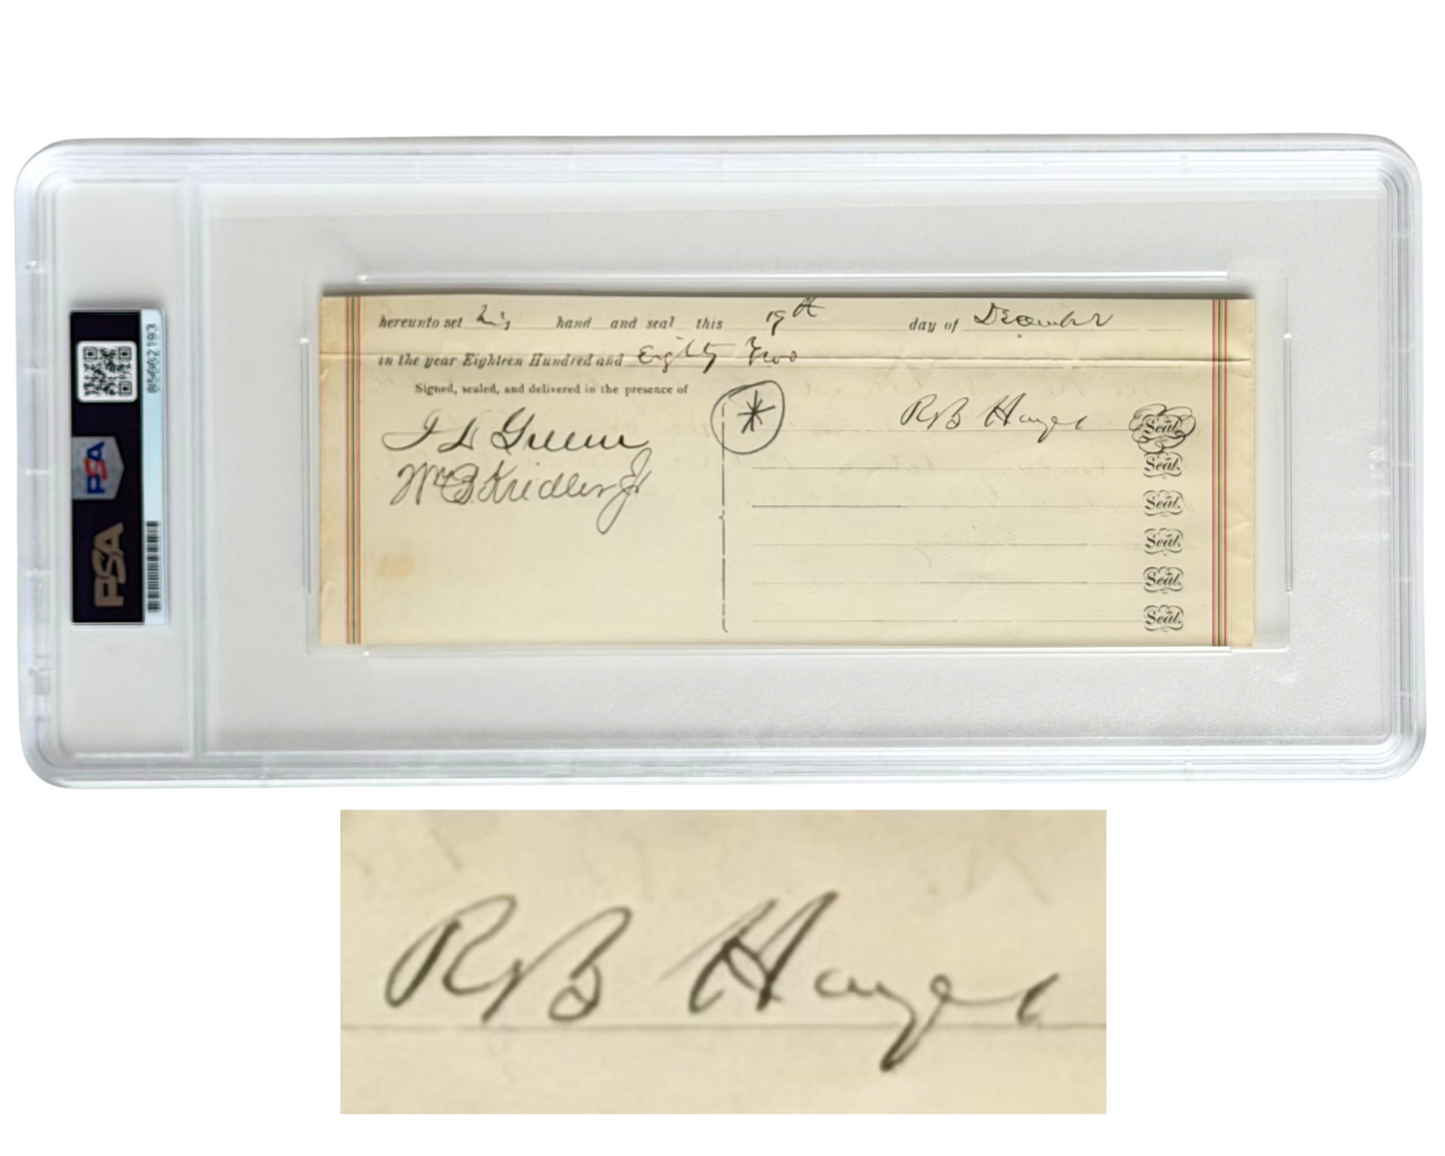 hereunto set his hand and seal this 19th day of December
in the year Eighteen Hundred and Eighty Two
Signed, sealed, and delivered in the presence of
R B Hayes Seal.
I D Greene
Wm B Kridler Jr
Seal.
Seal.
Seal.
Seal.
Seal.
85662193
PSA
PSA
R B Hayes